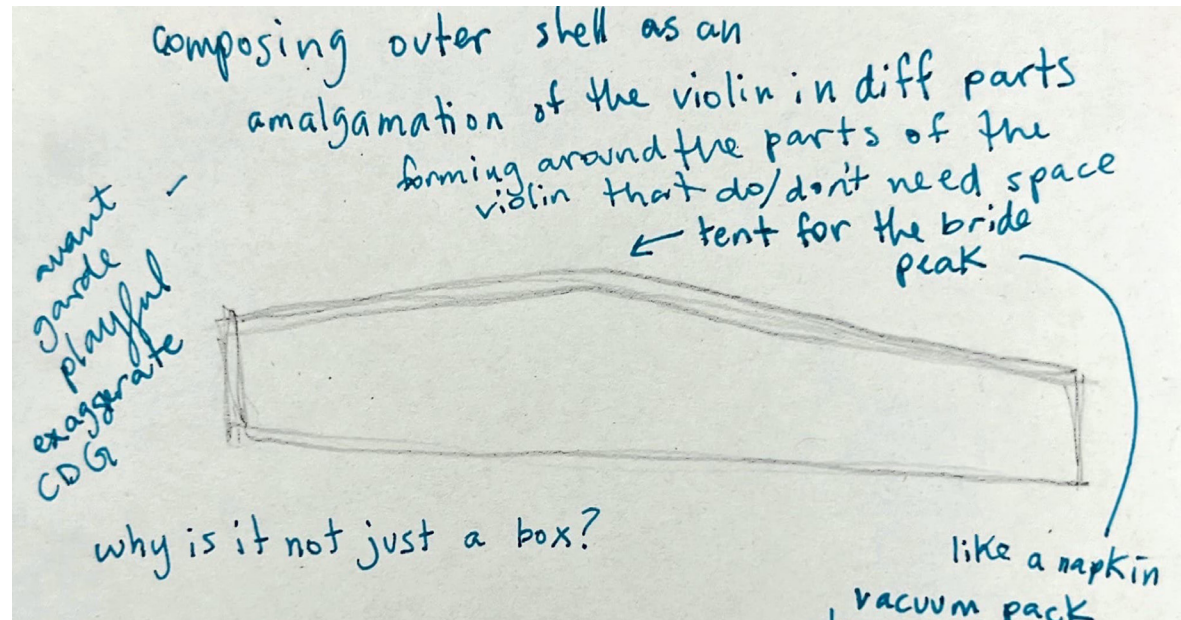 composing outer shell as an
amalgamation of the violin in diff parts
forming around the parts of the
violin that do/don't need space
← tent for the bride
peak
avant
garde
playful
exaggerate
CDG
why is it not just a box?
like a napkin
vacuum pack